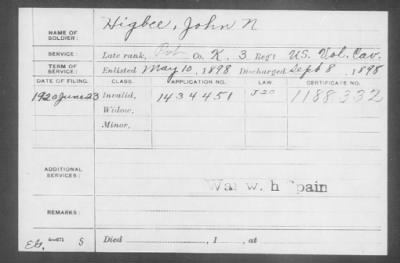 NAME OF SOLDIER: Higbee, John N
SERVICE: Late rank, Pvt Co. K, 3 Reg't US. Vol. Cav.
TERM OF SERVICE: Enlisted May 10, 1898 Discharged Sept 8, 1898
DATE OF FILING. CLASS. APPLICATION NO. LAW CERTIFICATE NO.
1920 June 23 Invalid, 1434451 J20 1188332
Widow,
Minor,
ADDITIONAL SERVICES:
War w. h Spain
REMARKS:
Died , 1 , at